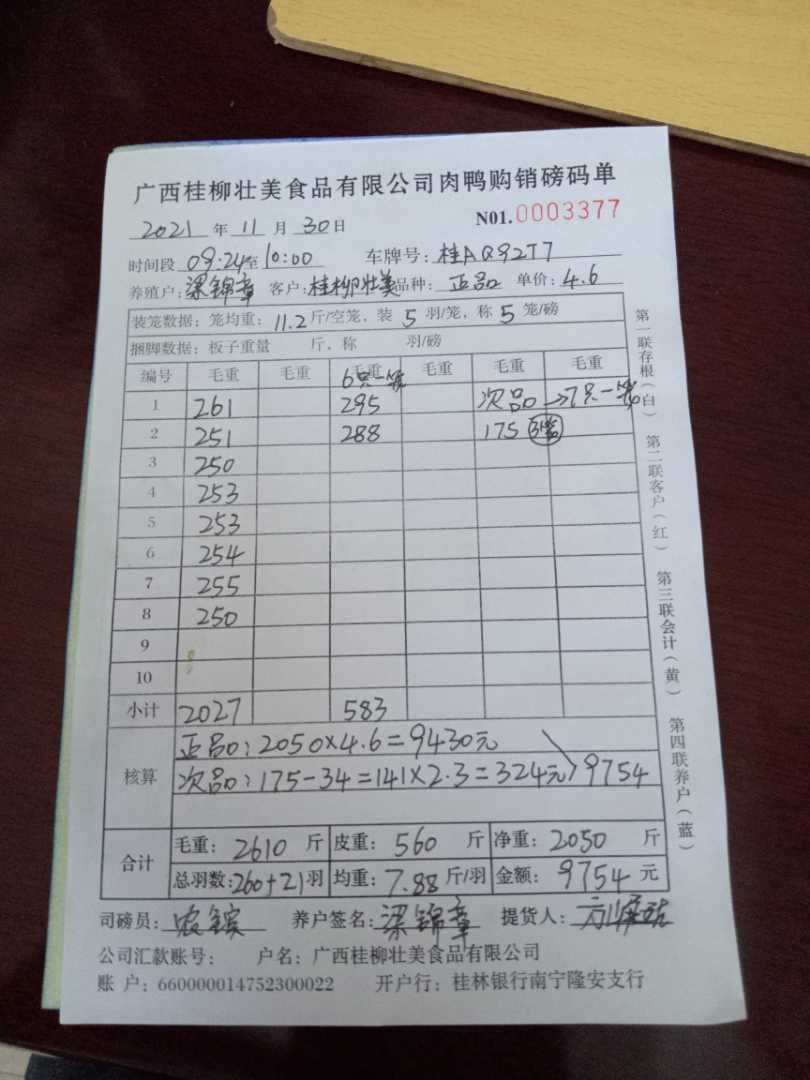 广西桂柳壮美食品有限公司肉鸭购销磅码单
2021 年 11 月 30 日 N01.0003377
时间段 09:24至10:00 车牌号:桂AQ92T7
养殖户:梁锦章 客户:桂柳壮美 品种: 正品 单价:4.6
装笼数据:笼均重:11.2斤/空笼,装 5 羽/笼,称 5 笼/磅
捆脚数据:板子重量 斤,称 羽/磅
编号 毛重 毛重 毛重 毛重 毛重 毛重
6只一笼
1 261 295 次品→7只一笼
2 251 288 175 3笼
3 250
4 253
5 253
6 254
7 255
8 250
9
10
小计 2027 583
核算
正品:2050×4.6=9430元
次品:175-34=141×2.3=324元 9754
合计
毛重:2610 斤 皮重:560 斤 净重:2050 斤
总羽数:260+21羽 均重:7.88斤/羽 金额:9754元
司磅员:农 养户签名:梁锦章 提货人:
公司汇款账号: 户名:广西桂柳壮美食品有限公司
账 户:660000014752300022 开户行:桂林银行南宁隆安支行
第一联存根(白) 第二联客户(红) 第三联会计(黄) 第四联养户(蓝)